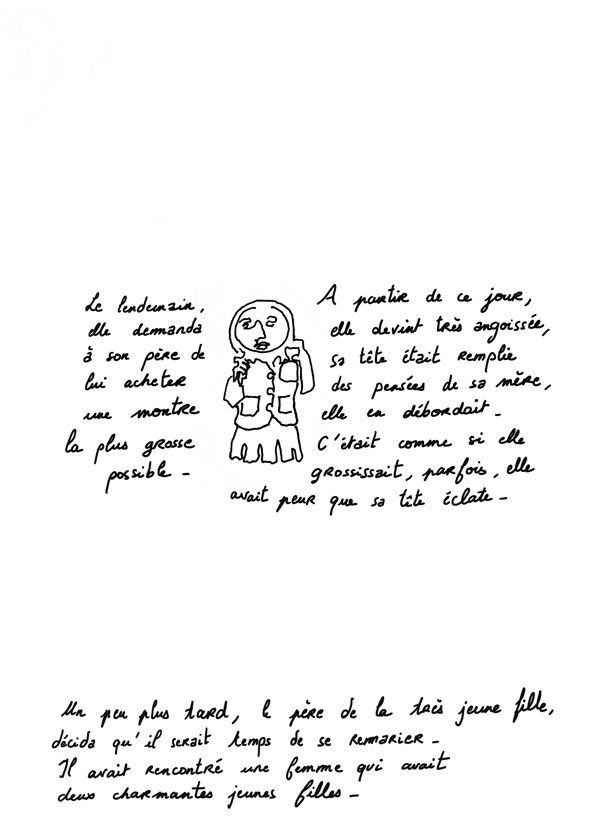 Le lendemain,
elle demanda
à son père de
lui acheter
une montre
la plus grosse
possible -
A partir de ce jour,
elle devint très angoissée,
sa tête était remplie
des pensées de sa mère,
elle en débordait -
C'était comme si elle
grossissait, parfois, elle
avait peur que sa tête éclate -
Un peu plus tard, le père de la très jeune fille,
décida qu'il serait temps de se remarier -
Il avait rencontré une femme qui avait
deux charmantes jeunes filles -